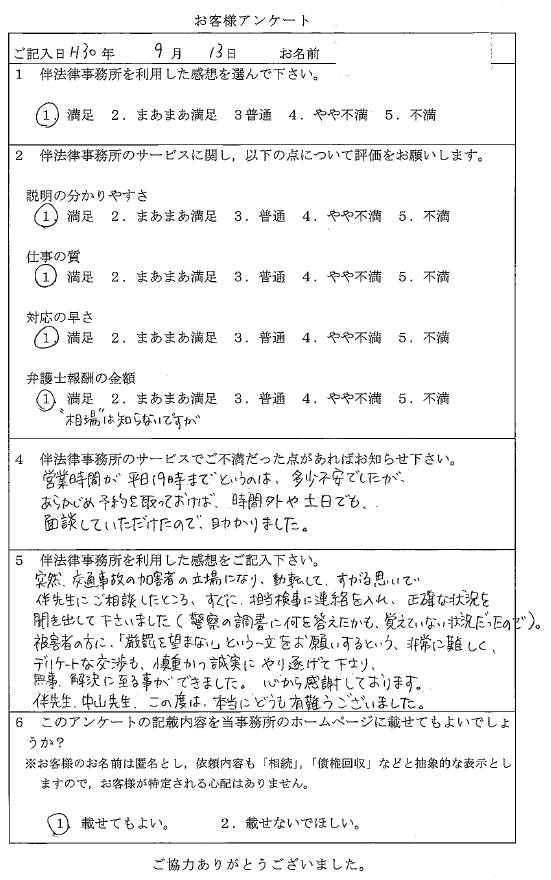 お客様アンケート
ご記入日 H30年 9月 13日 お名前
1 伴法律事務所を利用した感想を選んで下さい。
1. 満足 2．まあまあ満足 3普通 4．やや不満 5．不満
2 伴法律事務所のサービスに関し，以下の点について評価をお願いします。
説明の分かりやすさ
1. 満足 2．まあまあ満足 3．普通 4．やや不満 5．不満
仕事の質
1. 満足 2．まあまあ満足 3．普通 4．やや不満 5．不満
対応の早さ
1. 満足 2．まあまあ満足 3．普通 4．やや不満 5．不満
弁護士報酬の金額
1. 満足 2．まあまあ満足 3．普通 4．やや不満 5．不満
"相場"は知らないですが
4 伴法律事務所のサービスでご不満だった点があればお知らせ下さい。
営業時間が平日19時までというのは、多少不安でしたが、
あらかじめ予約を取っておけば、時間外や土日でも、
面談していただけたので、助かりました。
5 伴法律事務所を利用した感想をご記入下さい。
突然、交通事故の加害者の立場になり、動転して、すがる思いで
伴先生にご相談したところ、すぐに、担当検事に連絡を入れ、正確な状況を
聞き出して下さいました（警察の調書に何を答えたかも、覚えていない状況だったので）。
被害者の方に、「厳罰を望まない」という一文をお願いするという、非常に難しく、
デリケートな交渉も、慎重かつ誠実にやり遂げて下さり、
無事、解決に至る事ができました。心から感謝しております。
伴先生、中山先生、この度は、本当にどうも有難うございました。
6 このアンケートの記載内容を当事務所のホームページに載せてもよいでしょ
うか？
※お客様のお名前は匿名とし，依頼内容も「相続」，「債権回収」などと抽象的な表示とし
ますので，お客様が特定される心配はありません。
1. 載せてもよい。 2．載せないでほしい。
ご協力ありがとうございました。